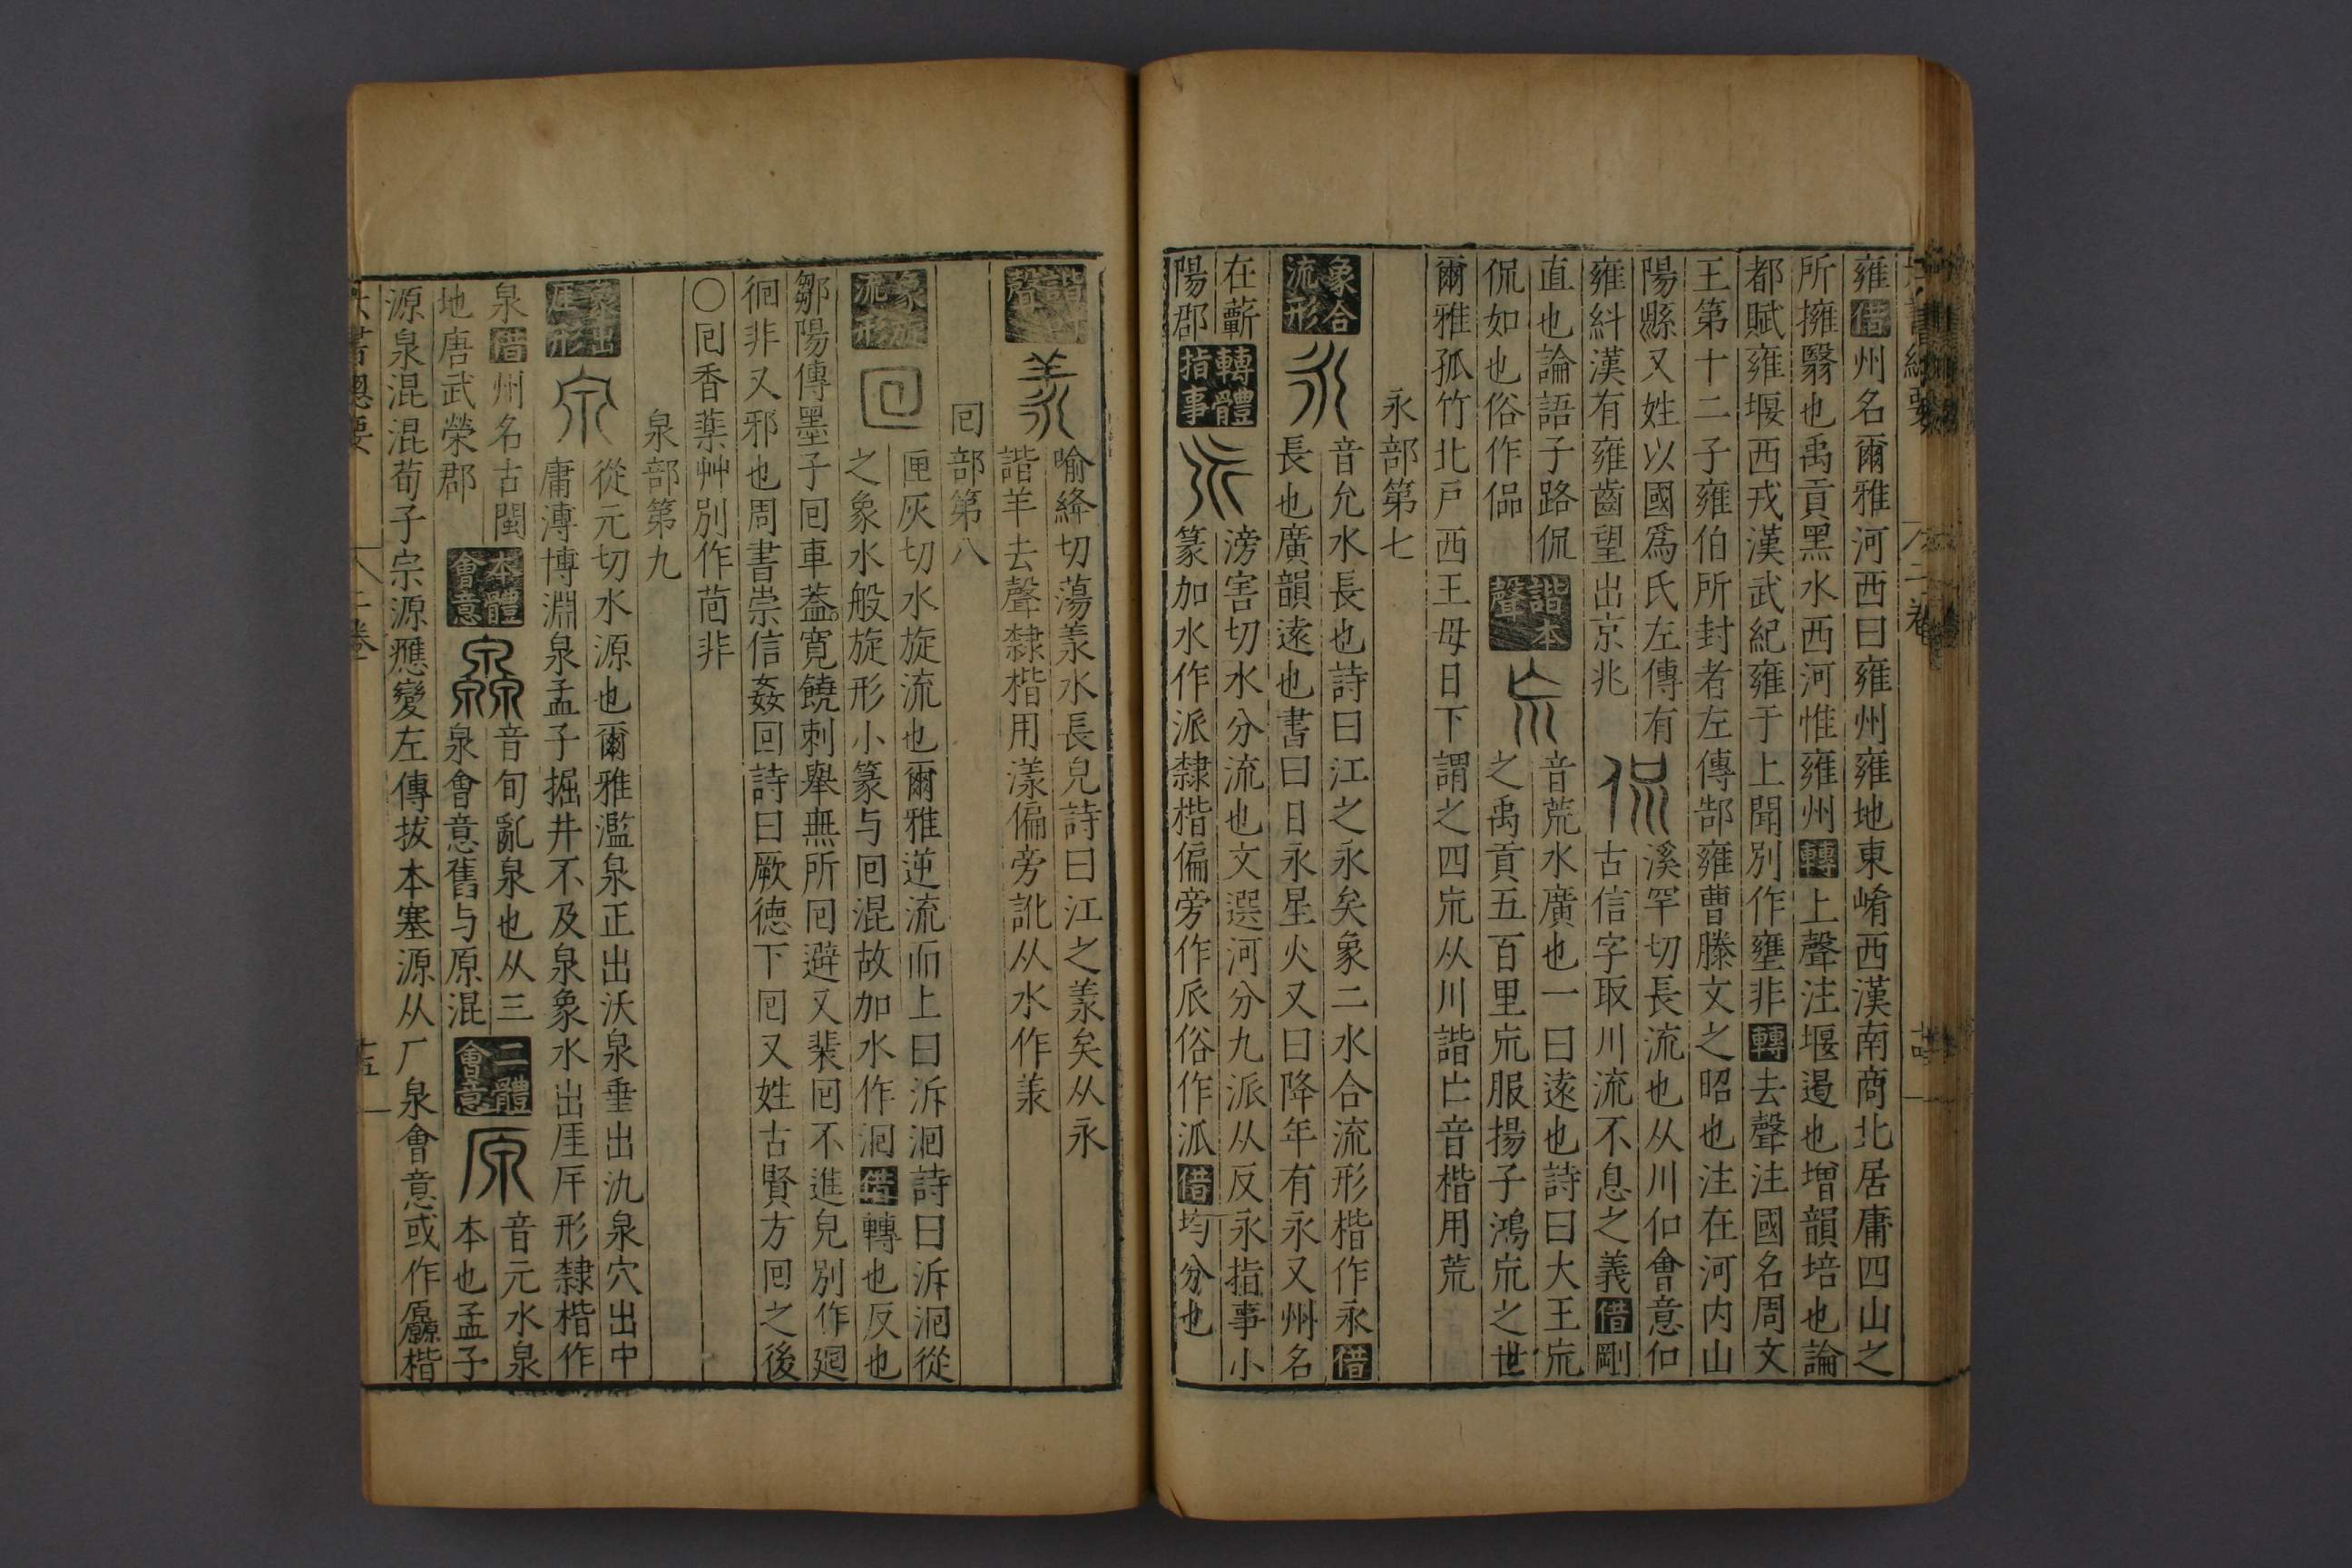 雍借州名爾雅河西曰雍州雍地東崤西漢南商北居庸四山之
所擁翳也禹貢黑水西河惟雍州轉上聲注堰遏也增韻培也論
都賦雍堰西戎漢武紀雍于上聞別作壅非轉去聲注國名周文
王第十二子雍伯所封者左傳郜雍曹滕文之昭也注在河内山
陽縣又姓以國爲氏左傳有
雍糾漢有雍齒望出京兆
侃
溪罕切長流也从川㐰會意㐰
古信字取川流不息之義借剛
直也論語子路侃
侃如也俗作偘
諧本聲
㠩
音荒水廣也一曰遠也詩曰大王㠩
之禹貢五百里㠩服揚子鴻㠩之世
爾雅孤竹北戶西王母日下謂之四㠩从川諧亡音楷用荒
永部第七
象合流形
永
音允水長也詩曰江之永矣象二水合流形楷作永借
長也廣韻遠也書曰日永星火又曰降年有永又州名
在蘄
陽郡
轉體指事
𠂢
滂害切水分流也文選河分九派从反永指事小
篆加水作派隸楷偏旁作𠂢俗作泒借均分也
諧聲
羕
喻絳切蕩羕水長皃詩曰江之羕矣从永
諧羊去聲隸楷用漾偏旁訛从水作羕
囘部第八
象旋流形
回
匣灰切水旋流也爾雅逆流而上曰泝洄詩曰泝洄從
之象水般旋形小篆与囘混故加水作洄借轉也反也
鄒陽傳墨子囘車葢寬饒刺舉無所囘避又裴囘不進皃別作廻
徊非又邪也周書崇信姦回詩曰厥德不囘又姓古賢方囘之後
○囘香藥艸別作茴非
泉部第九
象出厓形
泉
從元切水源也爾雅濫泉正出沃泉垂出氿泉穴出中
庸溥博淵泉孟子掘井不及泉象水出厓厈形隸楷作
泉借州名古閩
地唐武榮郡
本體會意
灥
音旬亂泉也从三
泉會意舊与原混
二體會意
原
音元水泉
本也孟子
源泉混混荀子宗源應變左傳拔本塞源从厂泉會意或作厵楷